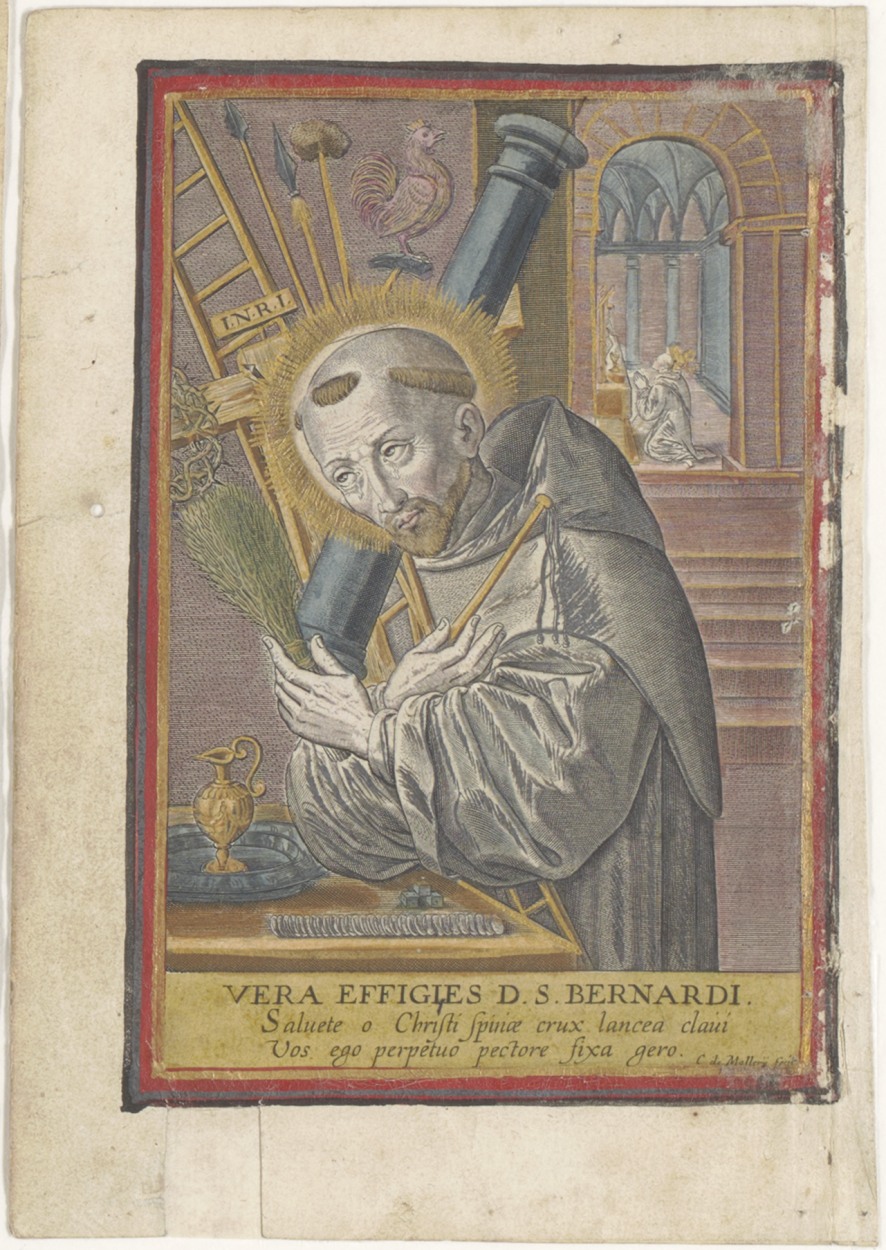 I.N.R.I.
VERA EFFIGIES D. S. BERNARDI.
Saluete o Chriſti ſpinæ crux lancea claui
Vos ego perpetuo pectore fixa gero.
C. de Mallery fecit